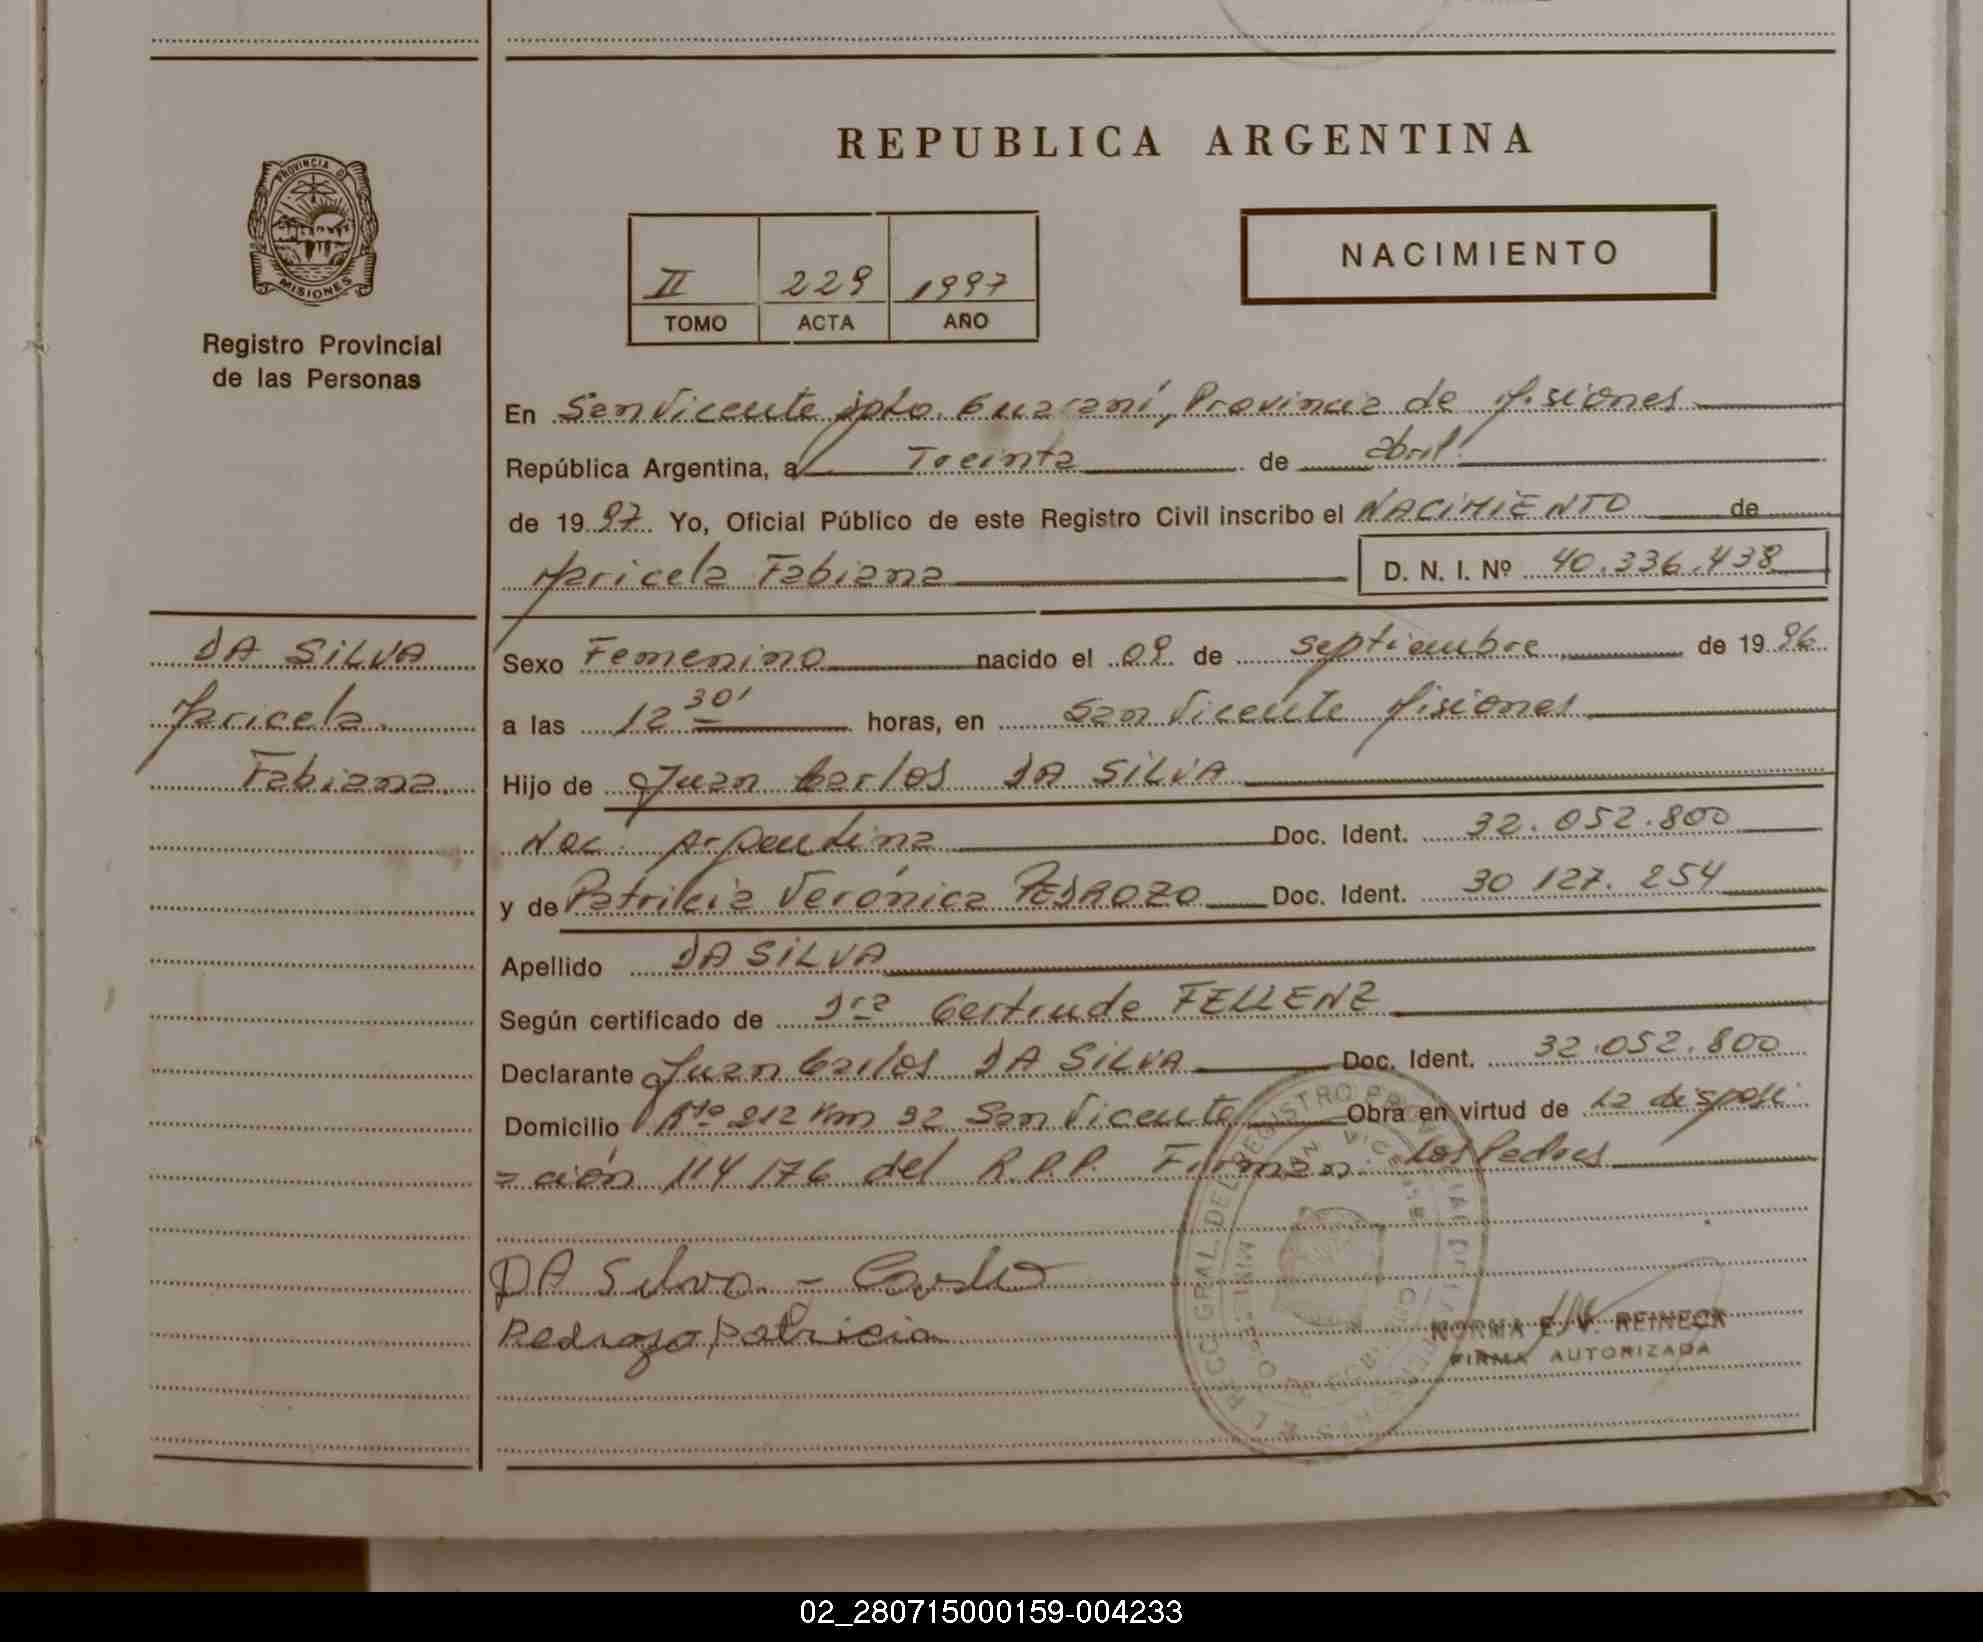 REPUBLICA ARGENTINA
PROVINCIA D
MISIONES
Registro Provincial
de las Personas
II 229 1997
TOMO ACTA AÑO
NACIMIENTO
En San Vicente dpto. Guaraní, Provincia de Misiones
República Argentina, a Treinta de abril
de 1997. Yo, Oficial Público de este Registro Civil inscribo el NACIMIENTO de
Maricela Fabiana D. N. I. Nº 40.336.438
DA SILVA
Maricela
Fabiana
Sexo Femenino nacido el 09 de septiembre de 1996
a las 12 30' horas, en San Vicente Misiones
Hijo de Juan Carlos DA SILVA
Nac. Argentina Doc. Ident. 32.052.800
y de Patricia Verónica PEDROZO Doc. Ident. 30 127. 254
Apellido DA SILVA
Según certificado de Dra Gertrude FELLENZ
Declarante Juan Carlos DA SILVA Doc. Ident. 32.052.800
Domicilio Rta 212 Km 92 San Vicente Obra en virtud de la disposi
=ción 114/76 del R.P.P. Firman los Padres
DA Silva - Carlos
Pedrozo, Patricia
NORMA E. V. REINECK
FIRMA AUTORIZADA
02_280715000159-004233